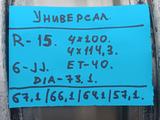 Универсал
R-15. 4x100.
4x114,3.
6-JJ. ET-40.
DIA-73,1.
67,1/66,1/64,1/57,1.